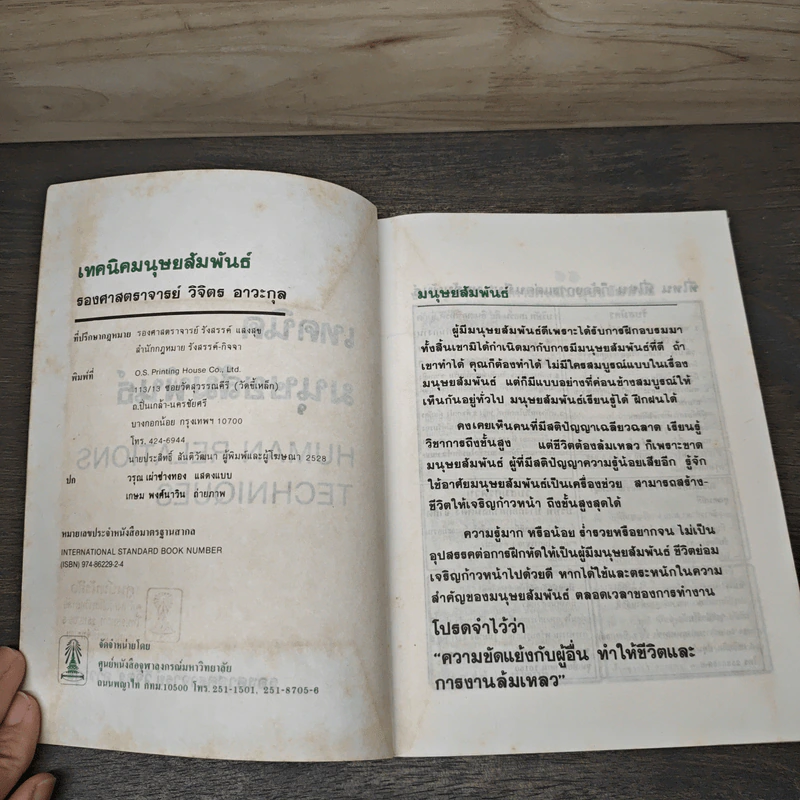 เทคนิคมนุษยสัมพันธ์
รองศาสตราจารย์ วิจิตร อาวะกุล
ที่ปรึกษากฎหมาย รองศาสตราจารย์ รังสรรค์ แสงสุข
สำนักกฎหมาย รังสรรค์-กิจจา
พิมพ์ที่ O.S. Printing House Co., Ltd.
113/13 ซอยวัดสุวรรณคีรี (วัดขี้เหล็ก)
ถ.ปิ่นเกล้า-นครชัยศรี
บางกอกน้อย กรุงเทพฯ 10700
โทร. 424-6944
นายประสิทธิ์ สันติวัฒนา ผู้พิมพ์และผู้โฆษณา 2528
ปก วรุณ เผ่าช่างทอง แสดงแบบ
เกษม พงศ์นาวิน ถ่ายภาพ
หมายเลขประจำหนังสือมาตรฐานสากล
INTERNATIONAL STANDARD BOOK NUMBER
(ISBN) 974-86229-2-4
จัดจำหน่ายโดย
ศูนย์หนังสือจุฬาลงกรณ์มหาวิทยาลัย
ถนนพญาไท กทม.10500 โทร. 251-1501, 251-8705-6
มนุษยสัมพันธ์
ผู้มีมนุษยสัมพันธ์ดีเพราะได้รับการฝึกอบรมมา
ทั้งสิ้นเขามิได้กำเนิดมากับการมีมนุษยสัมพันธ์ที่ดี ถ้า
เขาทำได้ คุณก็ต้องทำได้ ไม่มีใครสมบูรณ์แบบในเรื่อง
มนุษยสัมพันธ์ แต่ก็มีแบบอย่างที่ค่อนข้างสมบูรณ์ให้
เห็นกันอยู่ทั่วไป มนุษยสัมพันธ์เรียนรู้ได้ ฝึกฝนได้
คงเคยเห็นคนที่มีสติปัญญาเฉลียวฉลาด เรียนรู้
วิชาการถึงขั้นสูง แต่ชีวิตต้องล้มเหลว ก็เพราะขาด
มนุษยสัมพันธ์ ผู้ที่มีสติปัญญาความรู้น้อยเสียอีก รู้จัก
ใช้อาศัยมนุษยสัมพันธ์เป็นเครื่องช่วย สามารถสร้าง-
ชีวิตให้เจริญก้าวหน้า ถึงขั้นสูงสุดได้
ความรู้มาก หรือน้อย ร่ำรวยหรือยากจน ไม่เป็น
อุปสรรคต่อการฝึกหัดให้เป็นผู้มีมนุษยสัมพันธ์ ชีวิตย่อม
เจริญก้าวหน้าไปด้วยดี หากได้ใช้และตระหนักในความ
สำคัญของมนุษยสัมพันธ์ ตลอดเวลาของการทำงาน
โปรดจำไว้ว่า
“ความขัดแย้งกับผู้อื่น ทำให้ชีวิตและ
การงานล้มเหลว”